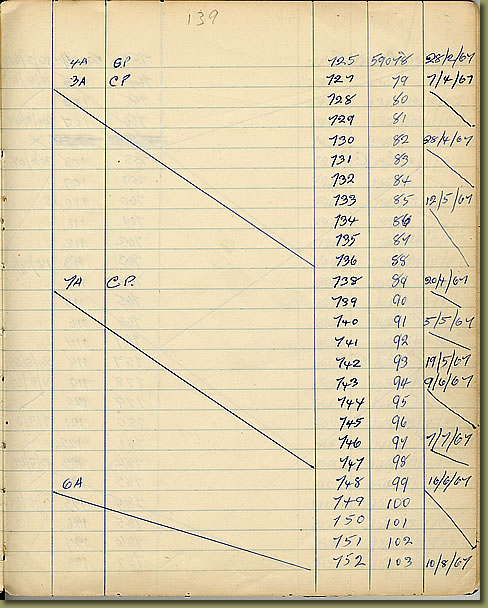 139
4A GP 725 59078 28/2/67
3A CP 727 79 7/4/67
728 80
729 81
730 82 28/4/67
731 83
732 84
733 85 12/5/67
734 86
735 87
736 88
7A C.P. 738 89 20/4/67
739 90
740 91 5/5/67
741 92
742 93 19/5/67
743 94 9/6/67
744 95
745 96
746 97 7/7/67
747 98
6A 748 99 16/6/67
749 100
750 101
751 102
752 103 10/8/67